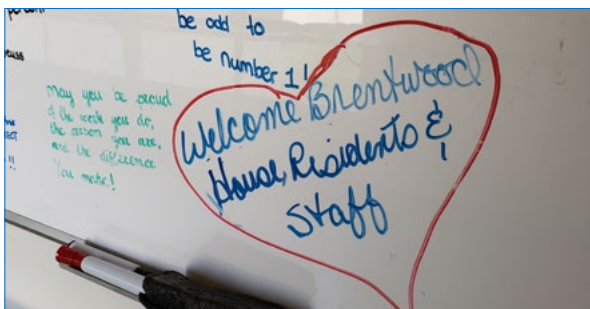 be odd to
be number 1!
May you be proud
of the work you do,
the person you are,
and the difference
You make!
Welcome Brentwood
House Residents &
Staff